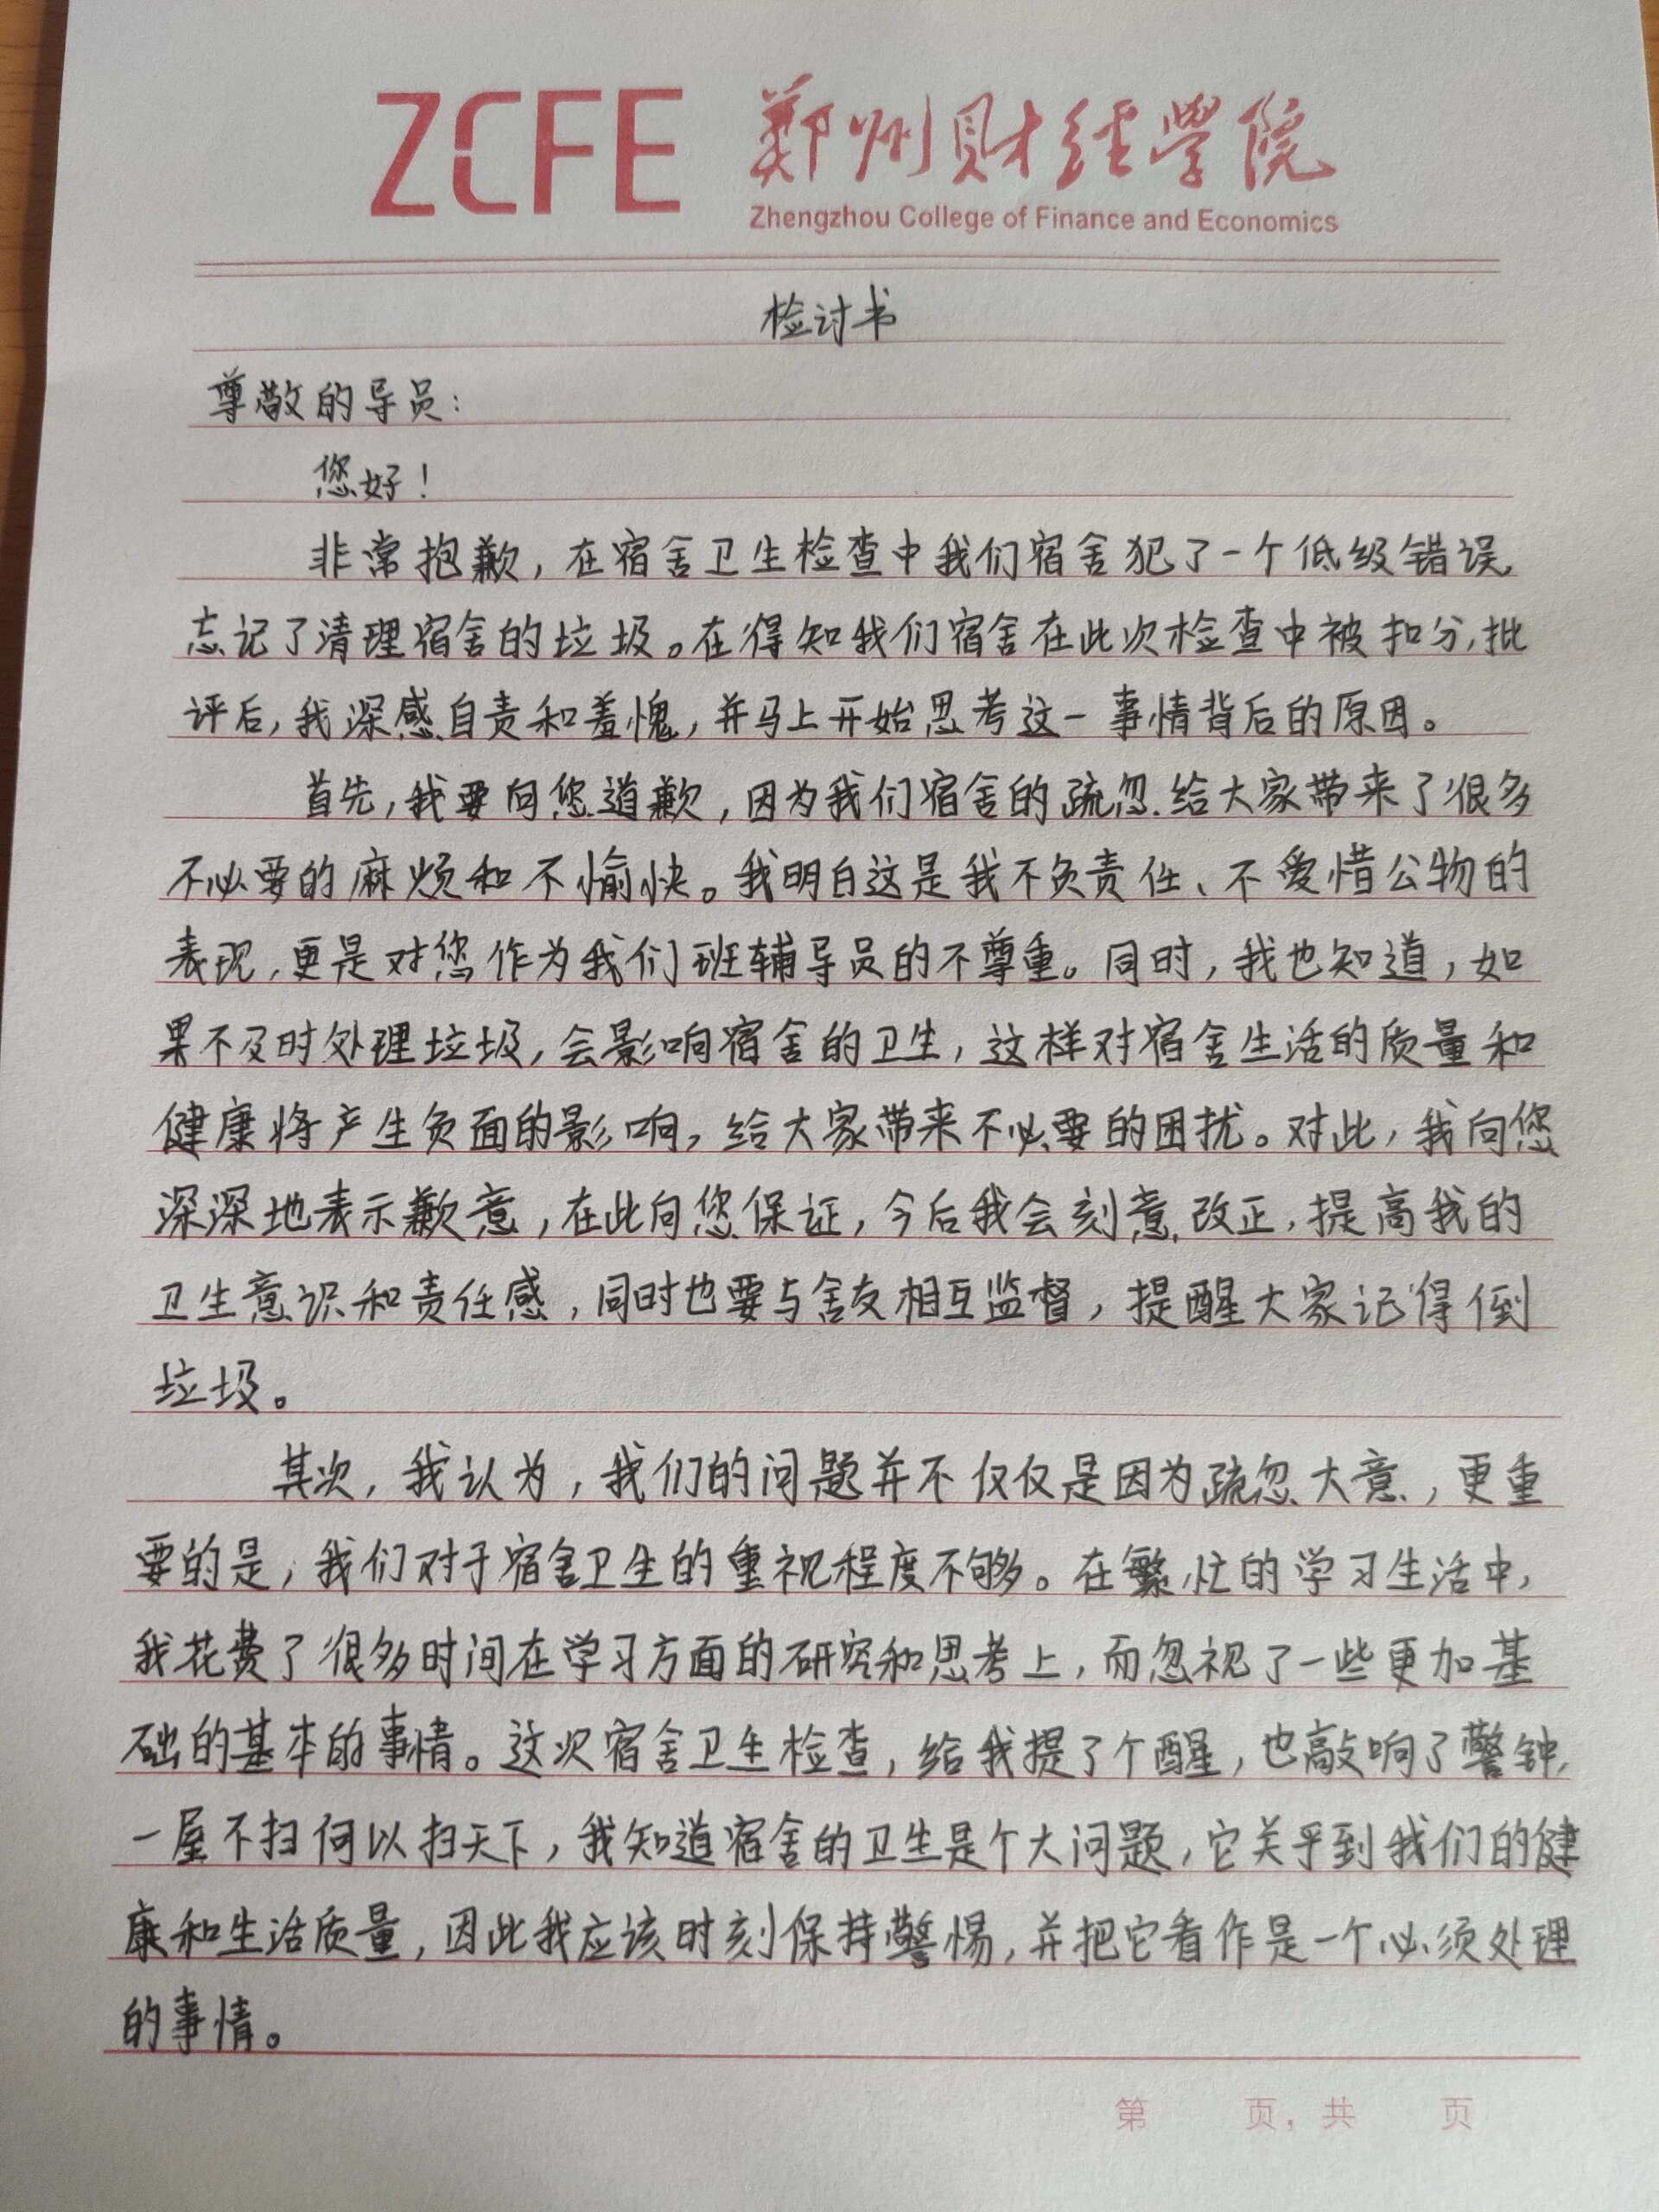 ZCFE 郑州财经学院
Zhengzhou College of Finance and Economics
检讨书
尊敬的导员：
您好！
非常抱歉，在宿舍卫生检查中我们宿舍犯了一个低级错误，
忘记了清理宿舍的垃圾。在得知我们宿舍在此次检查中被扣分，批
评后，我深感自责和羞愧，并马上开始思考这一事情背后的原因。
首先，我要向您道歉，因为我们宿舍的疏忽给大家带来了很多
不必要的麻烦和不愉快。我明白这是我不负责任、不爱惜公物的
表现，更是对您作为我们班辅导员的不尊重。同时，我也知道，如
果不及时处理垃圾，会影响宿舍的卫生，这样对宿舍生活的质量和
健康将产生负面的影响，给大家带来不必要的困扰。对此，我向您
深深地表示歉意，在此向您保证，今后我会刻意改正，提高我的
卫生意识和责任感，同时也要与舍友相互监督，提醒大家记得倒
垃圾。
其次，我认为，我们的问题并不仅仅是因为疏忽大意，更重
要的是，我们对于宿舍卫生的重视程度不够。在繁忙的学习生活中，
我花费了很多时间在学习方面的研究和思考上，而忽视了一些更加基
础的基本的事情。这次宿舍卫生检查，给我提了个醒，也敲响了警钟，
一屋不扫何以扫天下，我知道宿舍的卫生是个大问题，它关乎到我们的健
康和生活质量，因此我应该时刻保持警惕，并把它看作是一个必须处理
的事情。
第 页，共 页